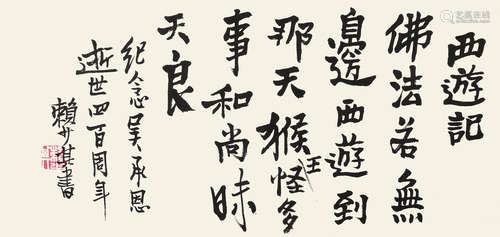 西遊記
佛法若無
邊遊西遊到
那天猴王怪多
事和尚昧
天良
紀念吳承恩
逝世四百周年
賴少其書